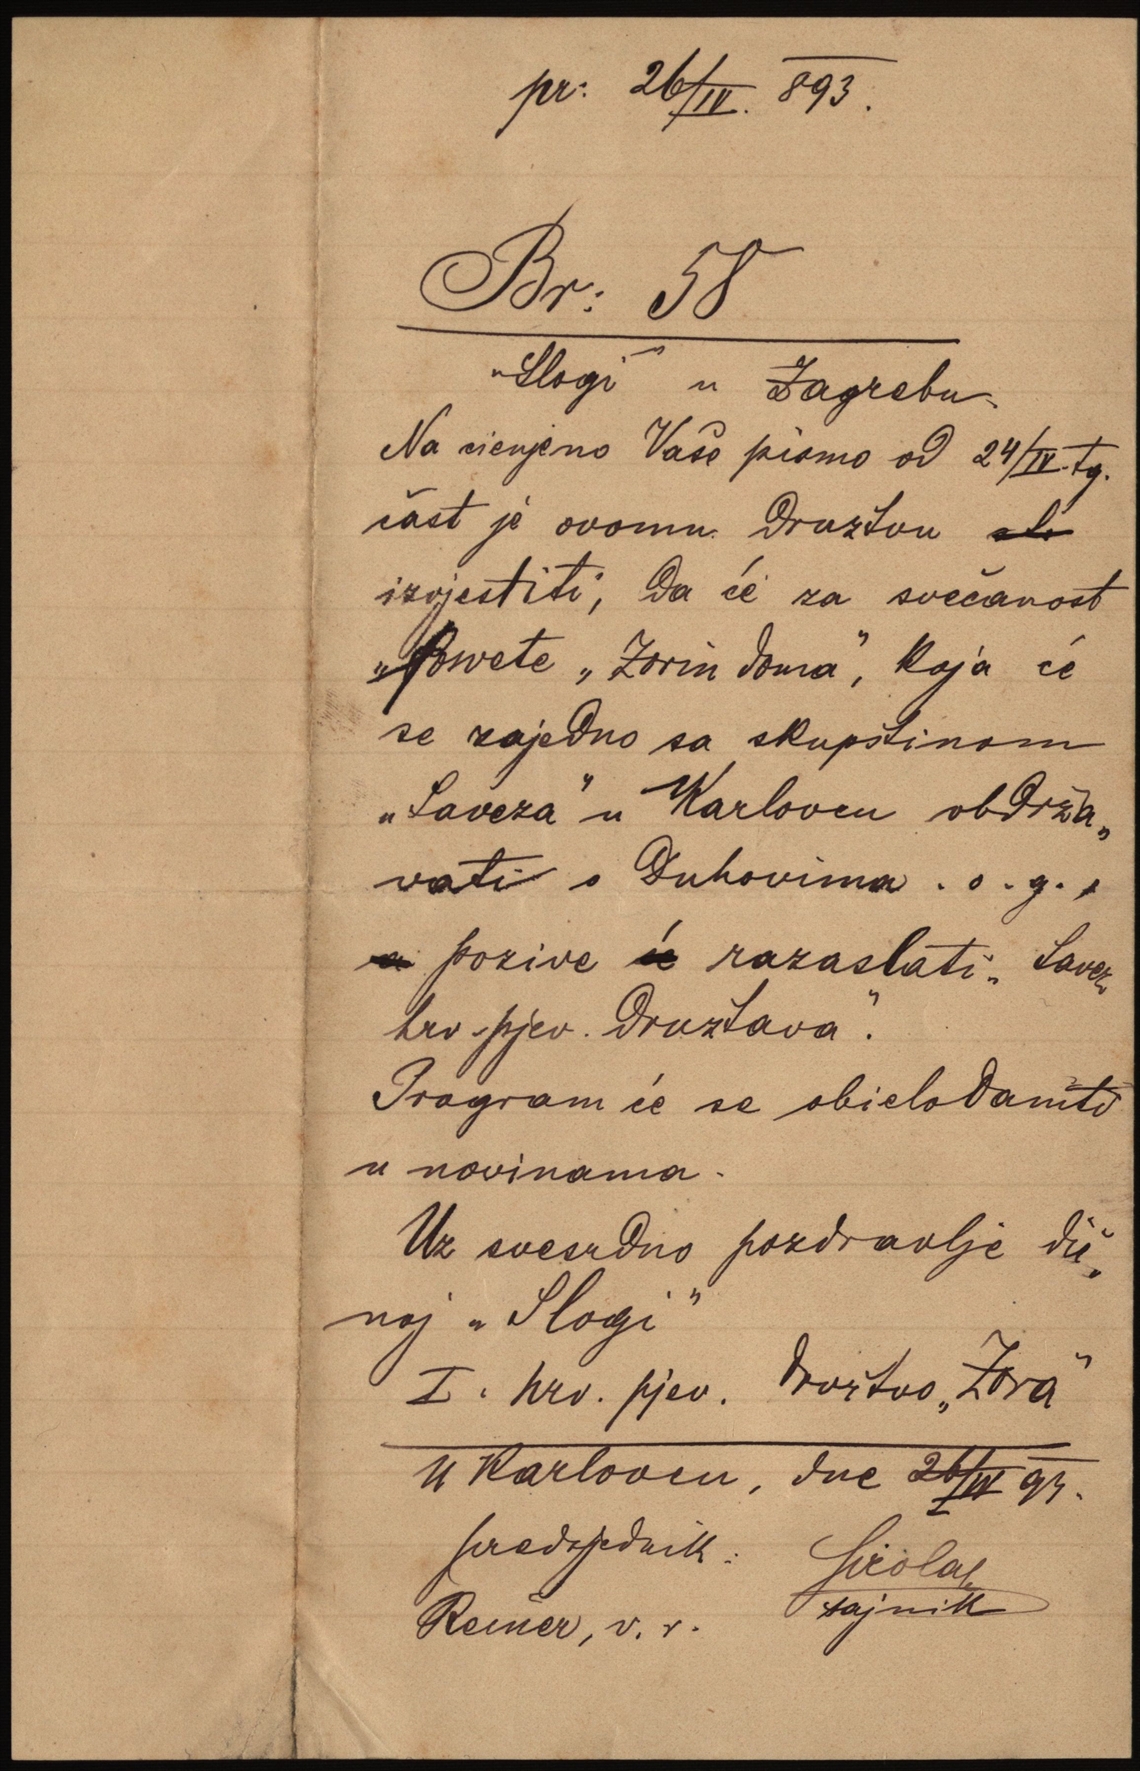 pr: 26/IV. 893.
Br: 58
„Slogi" u Zagrebu.
Na cienjeno Vaše pismo od 24/IV. tg.
čast je ovomu družtvu
izvjestiti, da će za svečanost
„Posvete „Zorin doma", koja će
se zajedno sa skupštinom
„Saveza" u Karlovcu obdrža„
vati o Duhovima . o . g. ,
a pozive će razaslati „Savez
hrv. pjev. družtava".
Program će se obielodaniti
u novinama.
Uz svesrdno pozdravlje dič„
noj „Slogi"
I. hrv. pjev. družtvo „Zora"
U Karlovcu, dne 26/IV 93.
predsjednik:
Reiner, v. r.
tajnik